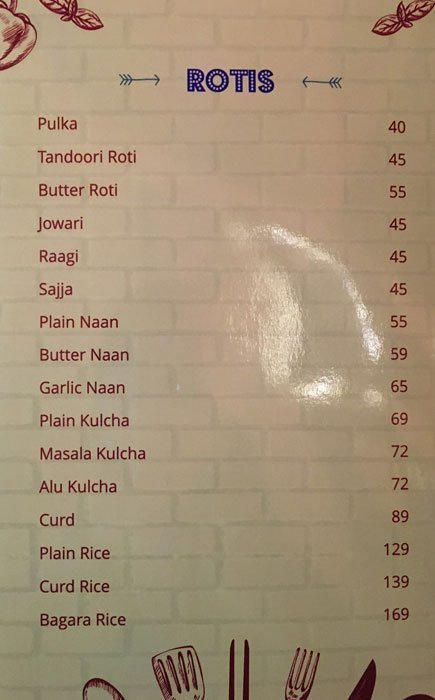 ROTIS
Pulka 40
Tandoori Roti 45
Butter Roti 55
Jowari 45
Raagi 45
Sajja 45
Plain Naan 55
Butter Naan 59
Garlic Naan 65
Plain Kulcha 69
Masala Kulcha 72
Alu Kulcha 72
Curd 89
Plain Rice 129
Curd Rice 139
Bagara Rice 169